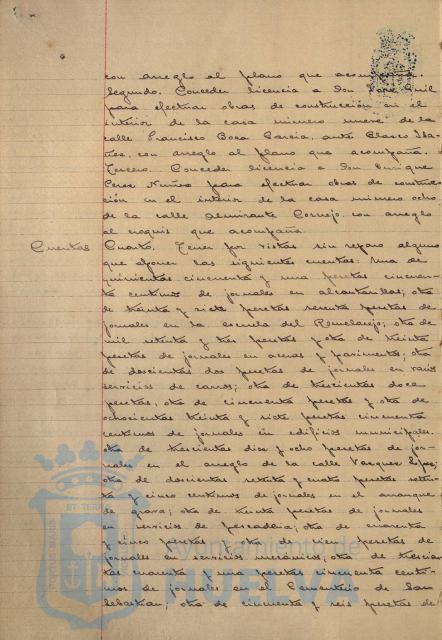 con arreglo al plano que acompaña.
Segundo. Conceder licencia a Don José Gil
para efectuar obras de construcción en el
interior de la casa número nueve de la
calle Francisco Boza García, ante Blasco Iba-
ñez, con arreglo al plano que acompaña.
Tercero. Conceder licencia a Don Enrique
Perez Nuñez para efectuar obras de construc-
ción en el interior de la casa número ocho
de la calle Almirante Cornejo, con arreglo
al croquis que acompaña
Cuentas
Cuarto. Tener por vistas sin reparo alguno
que oponer las siguientes cuentas: Una de
quinientas cincuenta y una pesetas cincuen-
ta centimos de jornales en alcantarillas; otra
de treinta y siete pesetas setenta pesetas de
jornales en la escuela del ; otra de
mil setenta y tres pesetas y otra de treinta
pesetas de jornales en arenas y pavimentos; otra
de doscientas dos pesetas de jornales en varios
servicios de carros; otra de trescientas doce
pesetas; otra de cincuenta pesetas y otra de
ochocientas treinta y siete pesetas cincuenta
centimos de jornales en edificios municipales;
otra de trescientas diez y ocho pesetas de jor-
nales en el arreglo de la calle Vazquez Lopez;
otra de doscientas setenta y cuatro pesetas seten-
ta y cinco centimos de jornales en el arranque
de grava; otra de treinta pesetas de jornales
en servicios de pescaderia; otra de cuarenta
y cinco pesetas y otra de cien pesetas de
jornales en servicios mecánicos; otra de trescien-
tas cuarenta y una pesetas cincuenta centi-
mos de jornales en el Cementerio de San
Sebastian; otra de cincuenta y seis pesetas de
Ayuntamiento de
HUELVA